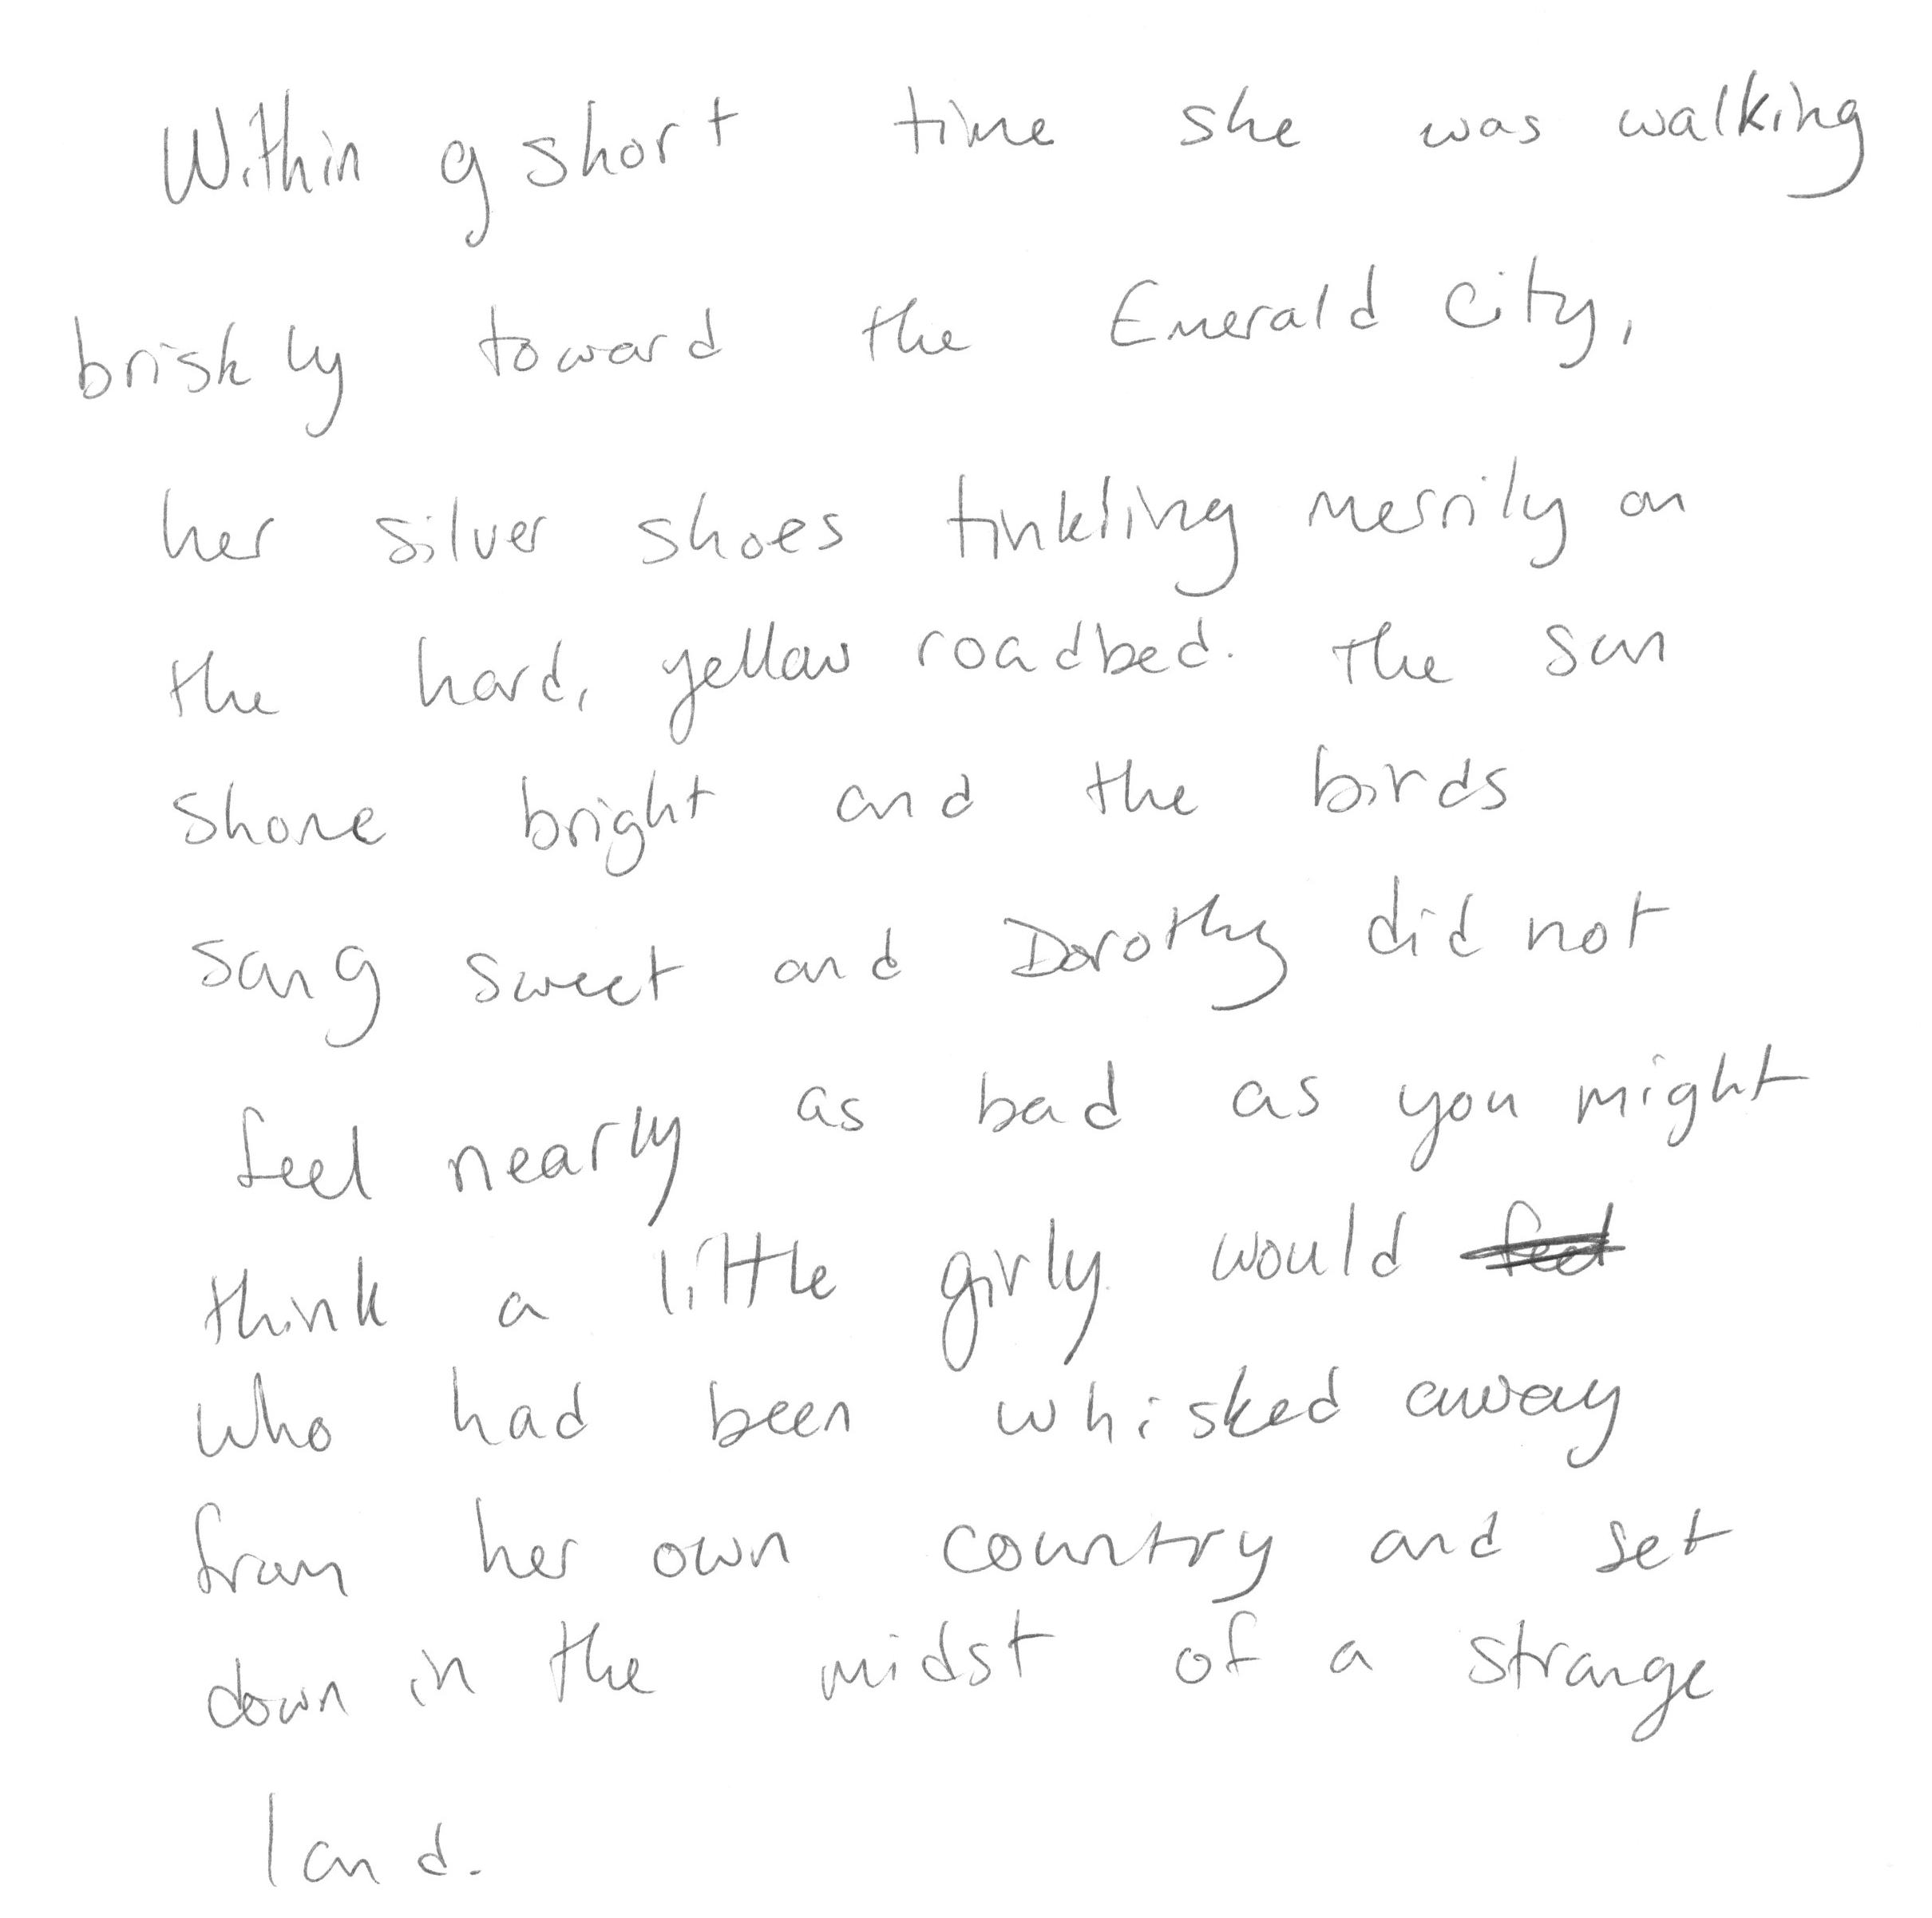 Within a short time she was walking
briskly toward the Emerald City,
her silver shoes tinkling merrily on
the hard, yellow roadbed. The sun
shone bright and the birds
sang sweet and Dorothy did not
feel nearly as bad as you might
think a little girly would
who had been whisked away
from her own country and set
down in the midst of a strange
land.